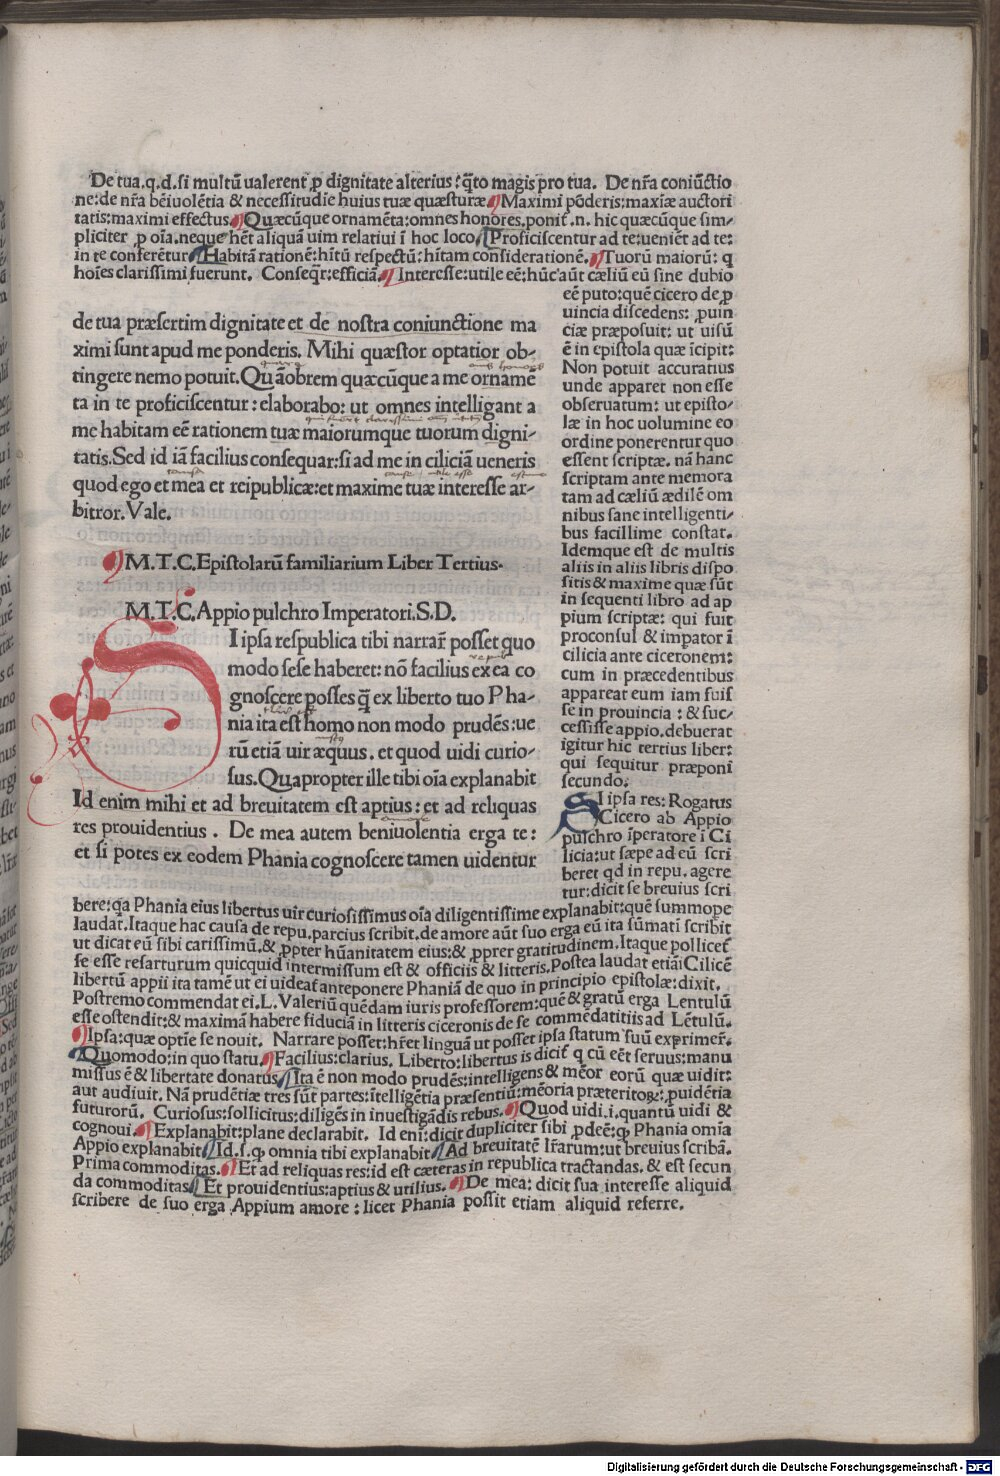 De tua.q.d.si multū ualerent ꝓ dignitate alterius: q̄to magis pro tua. De nr̄a coniūctio
ne:de nr̄a bēiuolētia & necessitudīe huius tuæ quæsturæ. Maximi pōderis:maxīæ auctori
tatis:maximi effectus. Quæcūque ornamēta:omnes honores.ponit̄.n. hic quæcūque sim-
pliciter ꝓ oīa.neque hēt aliquā uim relatiui ī hoc loco. Proficiscentur ad te:ueniēt ad te:
in te conferētur. Habitā rationē:hītū respectū:hītam considerationē. Tuorū maiorū: q
hoīes clarissimi fuerunt. Conseqr̄:efficiā. Interesse:utile eē:hūc aūt cæliū eū sine dubio
eē puto:quē cicero de ꝓ
uincia discedens: ꝓuin
ciæ præposuit: ut uisū
ē in epistola quæ īcipit:
Non potuit accuratius
unde apparet non esse
obseruatum: ut episto-
læ in hoc uolumine eo
ordine ponerentur quo
essent scriptæ. nā hanc
scriptam ante memora
tam ad cæliū ædilē om
nibus sane intelligenti-
bus facillime constat.
Idemque est de multis
aliis in aliis libris dispo
sitis & maxime quæ sūt
in sequenti libro ad ap
pium scriptæ: qui fuit
proconsul & impator ī
cilicia ante ciceronem:
cum in præcedentibus
appareat eum iam fuis
se in prouincia : & suc-
cessisse appio.debuerat
igitur hic tertius liber:
qui sequitur præponi
secundo.
de tua præsertim dignitate et de nostra coniunctione ma
ximi sunt apud me ponderis. Mihi quæstor optatior ob-
tingere nemo potuit. Quāobrem quæcūque a me orname
ta in te proficiscentur: elaborabo: ut omnes intelligant a
me habitam eē rationem tuæ maiorumque tuorum digni-
tatis. Sed id iā facilius consequar:si ad me in ciliciā ueneris
quod ego et mea et reipublicæ:et maxime tuæ interesse ar-
bitror. Vale.
M.T.C. Epistolarū familiarium Liber Tertius.
M.T.C. Appio pulchro Imperatori.S.D.
SI ipsa respublica tibi narrar̄ posset quo
modo sese haberet: nō facilius ex ea co
gnoscere posses q̄ ex liberto tuo Pha-
nia ita est homo non modo prudēs:ue
rū etiā uir æquus. et quod uidi curio-
sus. Quapropter ille tibi oīa explanabit
Id enim mihi et ad breuitatem est aptius: et ad reliquas
res prouidentius . De mea autem beniuolentia erga te:
et si potes ex eodem Phania cognoscere tamen uidentur
SI ipsa res: Rogatus
Cicero ab Appio
pulchro īperatore ī Ci
licia:ut sæpe ad eū scri
beret qd in repu. agere
tur: dicit se breuius scri
bere: qa Phania eius libertus uir curiosissimus oīa diligentissime explanabit: quē summope
laudat. Itaque hac causa de repu. parcius scribit. de amore aūt suo erga eū ita sūmatī scribit
ut dicat eū sibi carissimū. & ꝓpter hūanitatem eius: & ꝓprer gratitudinem. Itaque pollicet̄
se esse resarturum quicquid intermissum est & officiis & litteris. Postea laudat etiā Cilicē
libertū appii ita tamē ut ei uideat̄ anteponere Phaniā de quo in principio epistolæ: dixit.
Postremo commendat ei. L. Valeriū quēdam iuris professorem: quē & gratū erga Lentulū
esse ostendit: & maximā habere fiduciā in litteris ciceronis de se commēdatitiis ad Lētulū.
Ipsa: quæ optīe se nouit. Narrare posset: hr̄et linguā ut posset ipsa statum suū exprimer̄.
Quomodo: in quo statu. Facilius: clarius. Liberto: libertus is dicit̄ q cū eēt seruus: manu
missus ē & libertate donatus. Ita ē non modo prudēs: intelligens & mēor eorū quæ uidit:
aut audiuit. Nā prudētiæ tres sūt partes: ītelligētia præsentiū: mēoria præteritoꝝ: ꝓuidētia
futurorū. Curiosus: sollicitus: diligēs in inuestigādis rebus. Quod uidi .i. quantū uidi &
cognoui. Explanabit: plane declarabit. Id eni: dicit dupliciter sibi ꝓdeē: ꝙ Phania omīa
Appio explanabit. Id.s. ꝙ omnia tibi explanabit. Ad breuitatē lr̄arum: ut breuius scribā.
Prima commoditas. Et ad reliquas res: id est cæteras in republica tractandas. & est secun
da commoditas. Et prouidentius: aptius & utilius. De mea: dicit sua interesse aliquid
scribere de suo erga Appium amore : licet Phania possit etiam aliquid referre.
Digitalisierung gefördert durch die Deutsche Forschungsgemeinschaft - DFG